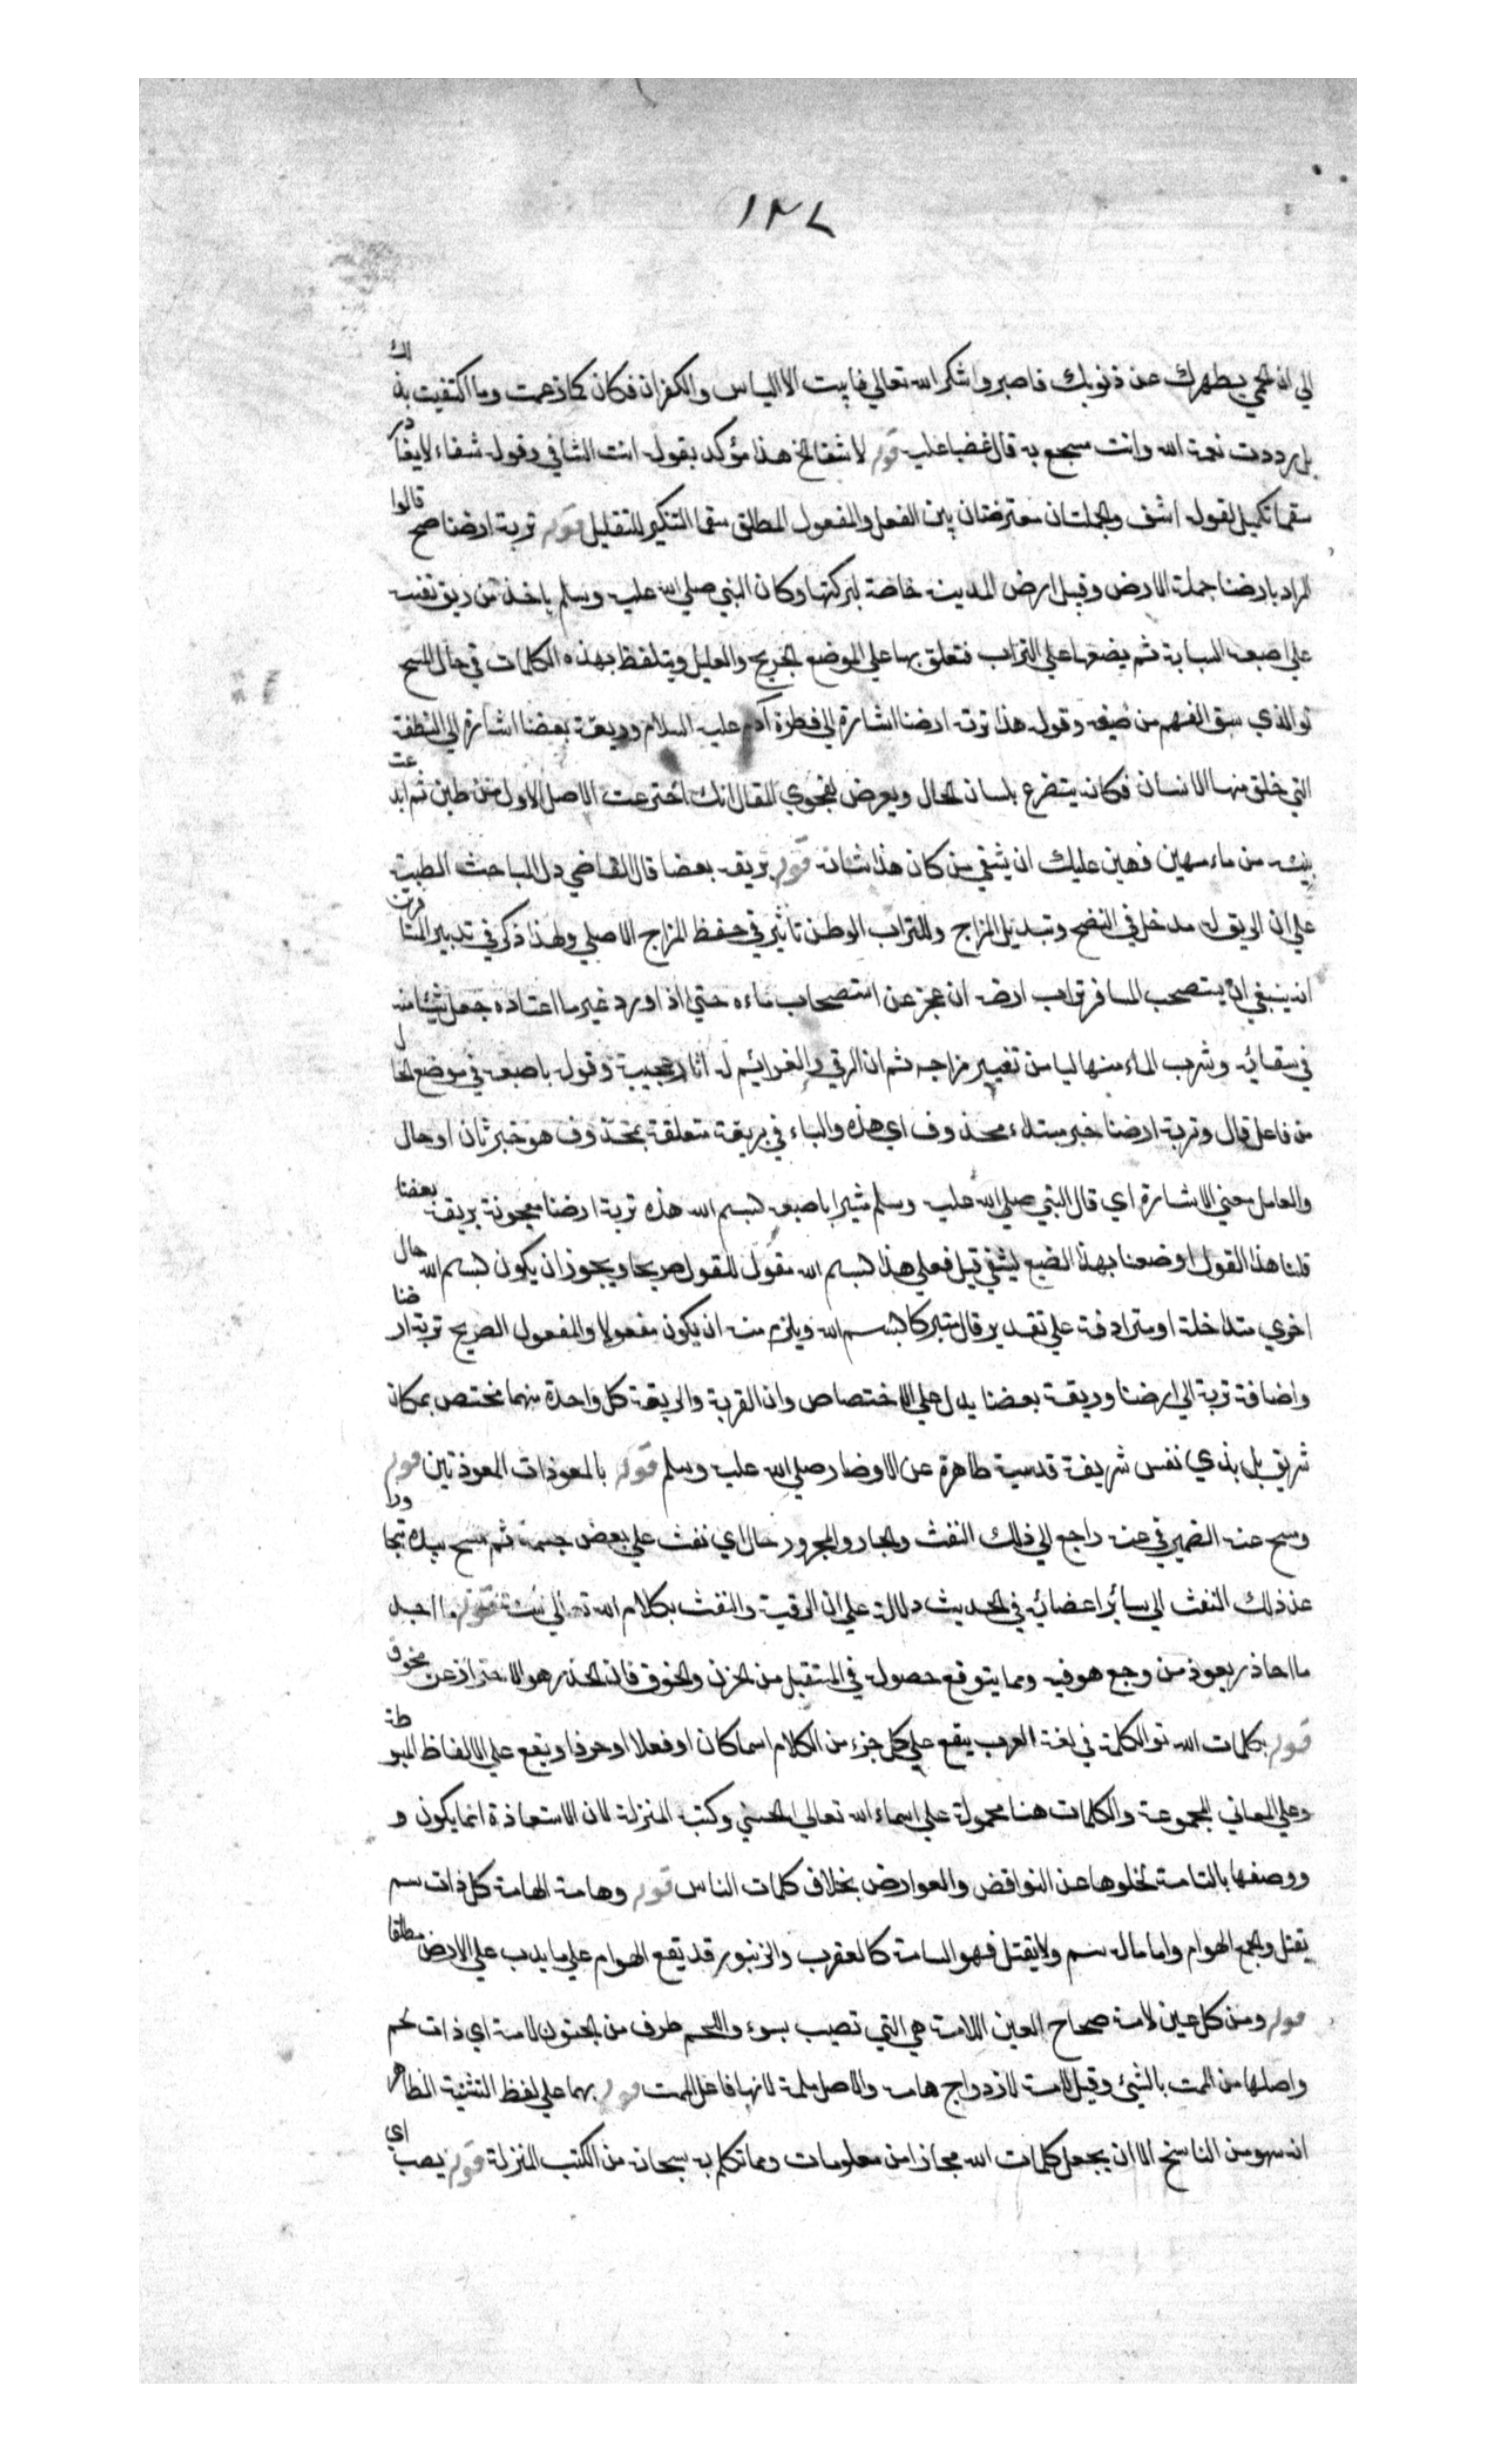 ١٣٧
الي ان الحمي يطهرك عن ذنوبك فاصبر واشكر الله تعالي فابيت الا الياس والكفران فكان كما زعمت وما اكتفيت بذلك
بل رددت نعمة الله وانت مسجع به قال غضبا عليه قوله لا شفا الخ هذا مؤكد بقوله انت الشافي وقوله شفاء لا يغادر
سقما تكميل لقوله اشف والجملتان معترضتان بين الفعل والمفعول المطلق سقما التنكير للتقليل قوله تربة ارضنا صح قالوا
المراد بارضنا جملة الارض وقيل ارض المدينة خاصة لبركتها وكان النبي صلي الله عليه وسلم ياخذ من ريق نفسه
علي اصبعه السبابة ثم يضعها علي التراب فتعلق بها علي الموضع الجريح والعليل ويتلفظ بهذه الكلمات في حال المسح
تو الذي سبق الفهم من صيغه وقوله هذا تربة ارضنا اشارة الي فطرة آدم عليه السلام وريقة بعضنا اشارة الي النطفة
التي خلق منها الانسان فكانه يتضرع بلسان الحال ويعرض بفحوي المقال انك اخترعت الاصل الاول من طين ثم ابدعت
بنيه من ماء مهين فهين عليك ان تشفي من كان هذا شانه قوله بريقه بعضا قال القاضي دل المباحث الطبية
علي ان الريق له مدخل في النضج وتبديل المزاج وللتراب الوطن تاثير في حفظ المزاج الاصلي ولهذا ذكر في تدبير المسافرين
انه ينبغي ان يستصحب المسافر تراب ارضه ان عجز عن استصحاب ماءه حتي اذا ورد غير ما اعتاده جعل شيئا منه
في سقائه وشرب الماء منها ليامن تغيير مزاجه ثم ان الرقي والعزائيم له اثار عجيبة وقوله باصبعه في موضع الحال
من فاعل قال وتربة ارضنا خبر مبتداء محذوف اي هذه والباء في بريقة متعلقة بمحذوف هو خبر ثان او حال
والعامل معني الاشارة اي قال النبي صلي الله عليه وسلم مشيرا باصبعه بسم الله هذه تربة ارضنا معجونة بريقه بعضنا
قلنا هذا القول او صنعنا بهذا الصنيع ليشفي قيل فعلي هذا بسم الله مقول للقول صريحا ويجوز ان يكون بسم الله حال
اخري متداخلة او مترادفة علي تقدير قال متبركا بسم الله ويلزم منه ان يكون مفعولا والمفعول الصريح تربة ارضنا
واضافة تربة الي ارضنا وريقة بعضنا يدل علي الاختصاص وان القربة والريقة كل واحدة منهما مختص بمكان
شريق بل بذي نفس شريفة قدسية طاهرة عن الاوضار صلي الله عليه وسلم قوله بالمعوذات المعوذتين قوله
ومسح عنه الضمير في عنه راجع الي ذلك النفث والجار والمجرور حال اي نفث علي بعض جسمه ثم مسح بيده متجاورا
عن ذلك النفث الي سائر اعضائه في الحديث دلالة علي ان الرقية والنفث بكلام الله تعالي سنة قوله ما اجد
ما احاذر يعوذ من وجع هو فيه ومما يتوقع حصوله في المستقبل من الحزن والخوف فان الحذر هو الاحتراز عن مخوف
قوله بكلمات الله تو الكلمة في لغة العرب يقع علي كل جزء من الكلام اسما كان او فعلا او حرفا ويقع علي الالفاظ المبوطة
وعلي المعاني المجموعة والكلمات هنا محمولة علي اسماء الله تعالي الحسني وكتبه المنزلة لان الاستعاذة انما يكون و
ووصفها بالتامة لخلوها عن النواقض والعوارض بخلاف كلمات الناس قوله وهامة الهامة كل ذات سم
يقتل والجمع الهوام واما ماله سم ولا يقتل فهو السامة كالعقرب والزنبور قد يقع الهوام علي ما يدب علي الارض مطلقا
قوله ومن كل عين لامة صحاح العين اللامة هي التي تصيب بسوء واللمم طرف من الجنون لامة اي ذات لمم
واصلها من الممت بالشيئ وقيل لامة لازدواج هامه والاصل ملمة لانها فاعل الممت قوله بهما علي لفظ التثنية الظاهر
انه سهو من الناسخ الا ان يجعل كلمات الله مجازا من معلومات ومما تكلم به سبحانه من الكتب المنزلة قوله يصب اي